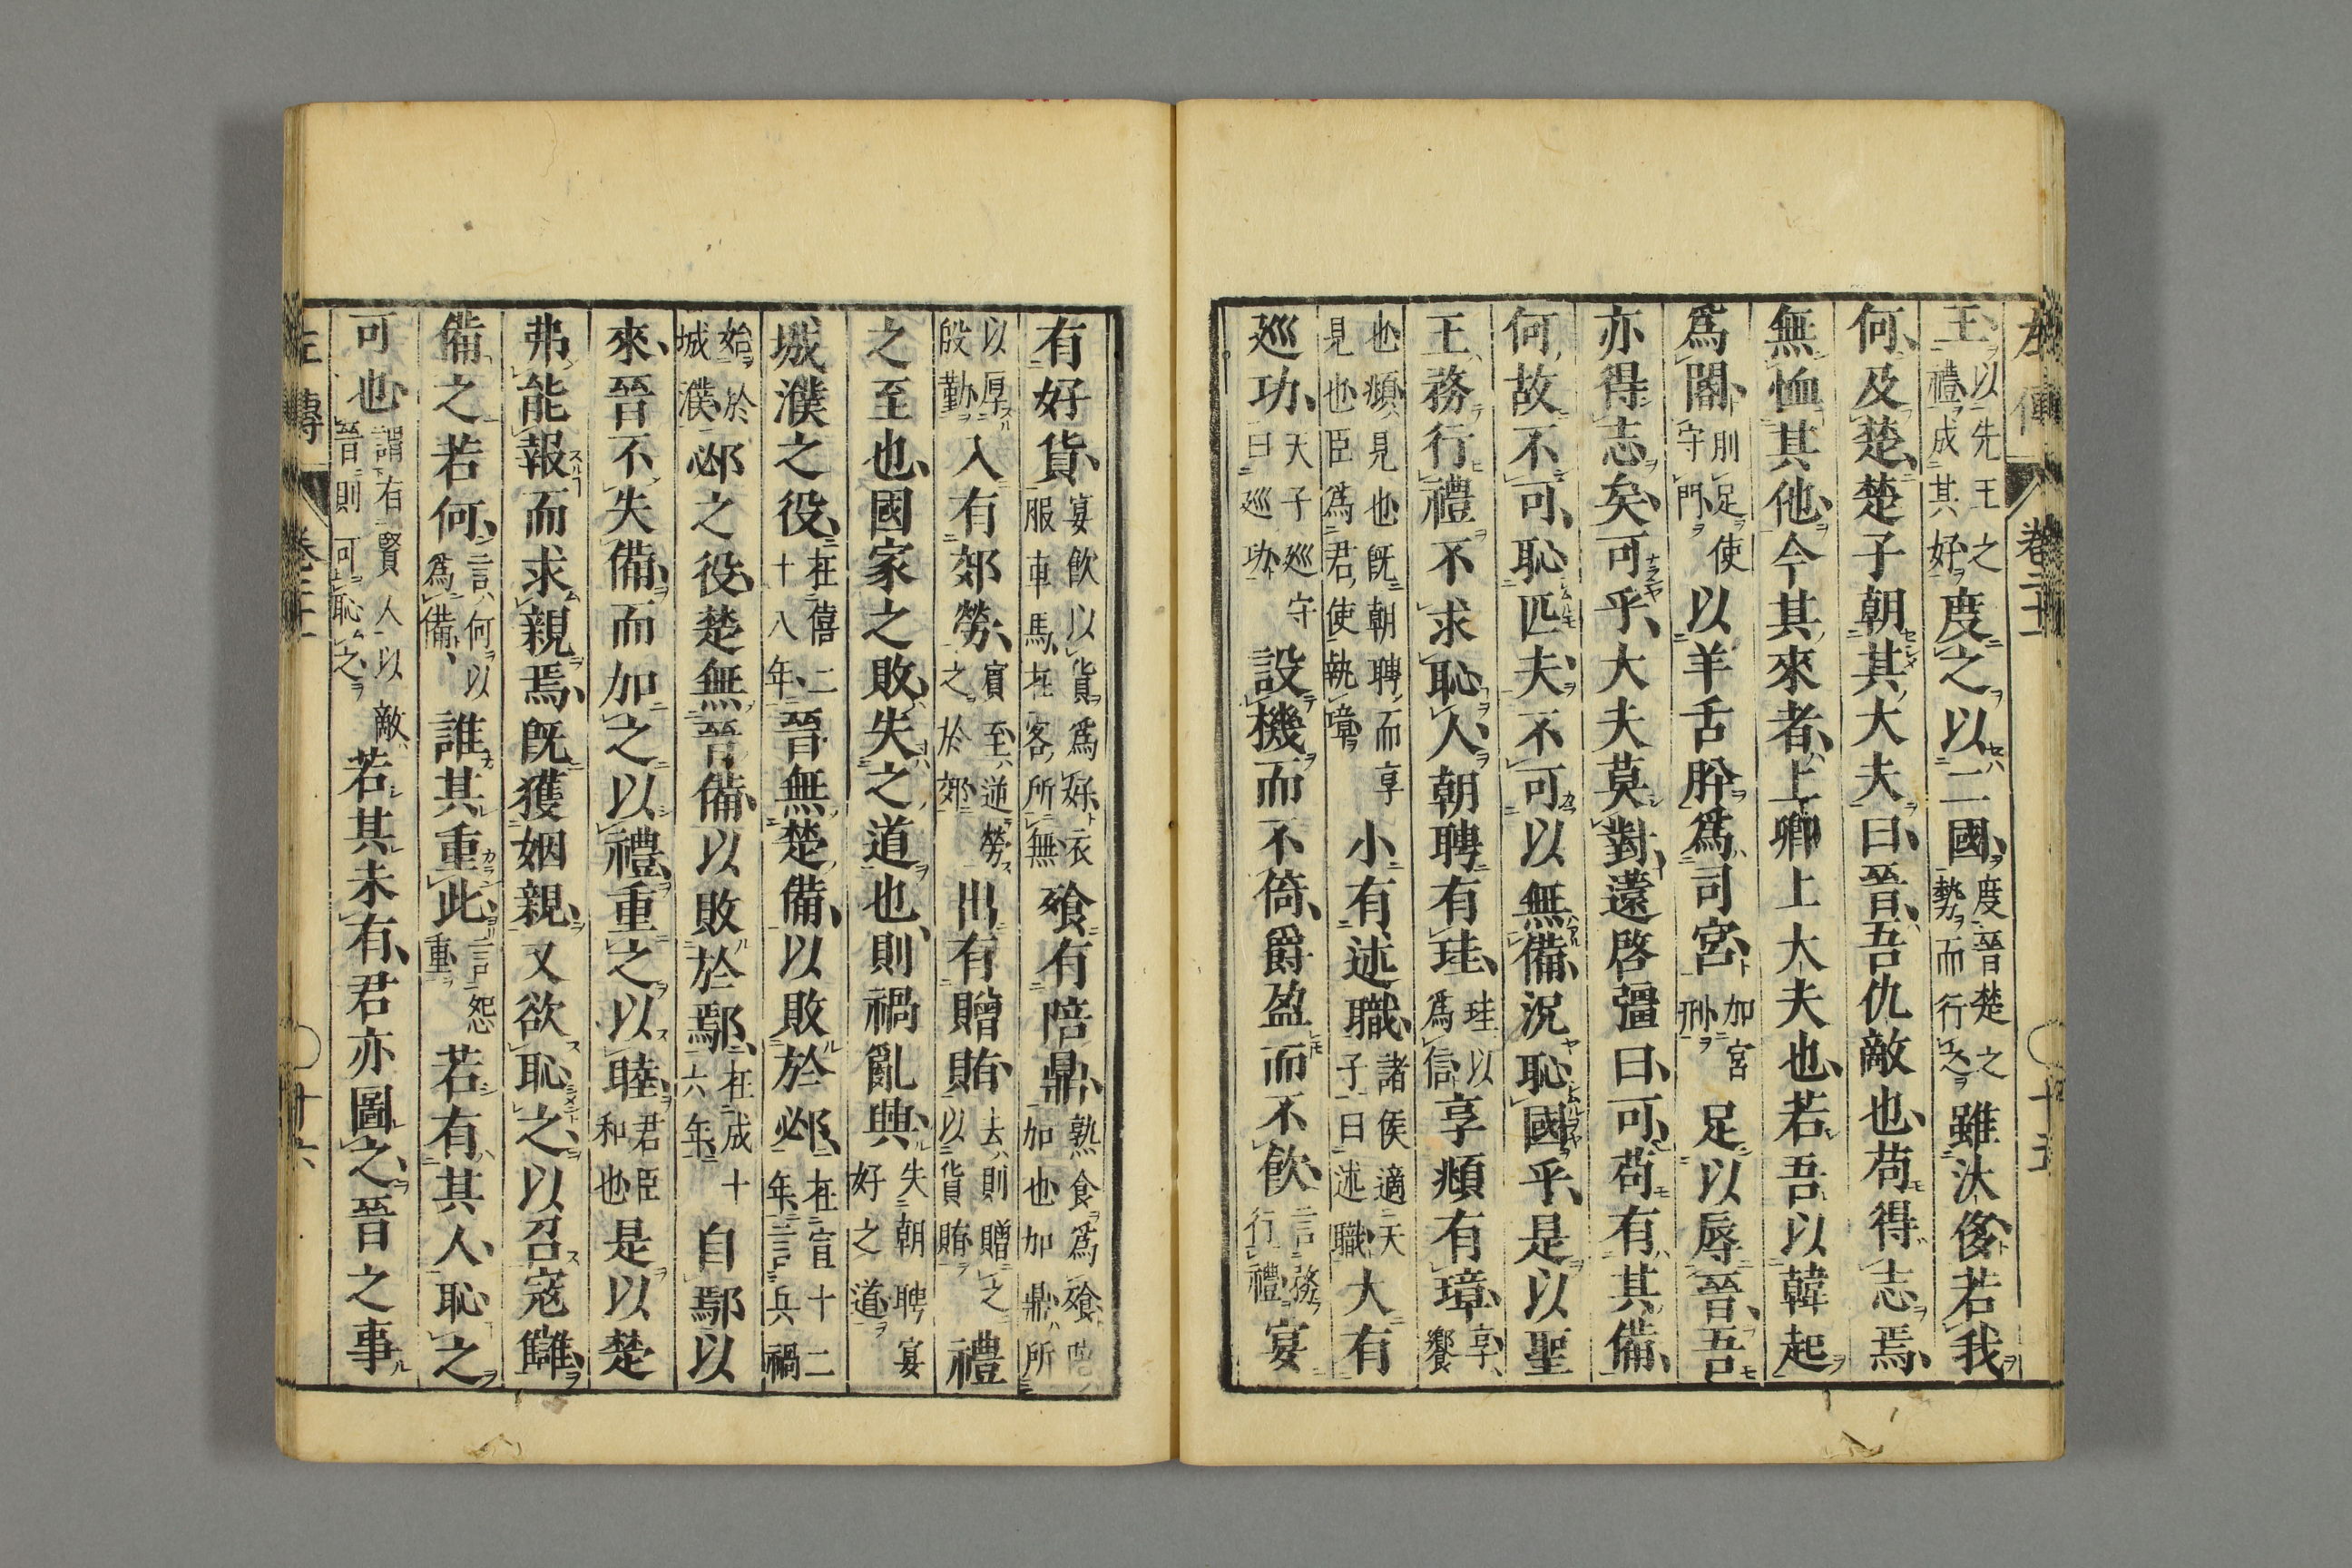 左傳 卷二十一 十五
王以先王之禮成其好度之以二國度晉楚之勢而行之雖汰侈若我
何及楚楚子朝其大夫曰晉吾仇敵也苟得志焉
無恤其他今其來者上卿上大夫也若吾以韓起
爲閽刖足使守門以羊舌肸爲司宮加宮刑足以辱晉吾
亦得志矣可乎大夫莫對薳啓彊曰可苟有其備
何故不可恥匹夫不可以無備況恥國乎是以聖
王務行禮不求恥人朝聘有珪珪以爲信享頫有璋享饗
也頫見也旣朝聘而享見也臣爲君使執璋小有述職諸侯適天子曰述職大有
巡功天子巡守曰巡功設機而不倚爵盈而不飮言務行禮宴
有好貨宴飮以貨爲好衣服車馬在客所無飧有陪鼎熟食爲飧陪加也加鼎所
以厚殷勤入有郊勞賓至逆勞之於郊出有贈賄去則贈之以貨賄禮
之至也國家之敗失之道也則禍亂興失朝聘宴好之道
城濮之役在僖二十八年晉無楚備以敗於邲在宣十二年言兵禍
始於城濮邲之役楚無晉備以敗於鄢在成十六年自鄢以
來晉不失備而加之以禮重之以睦君臣和也是以楚
弗能報而求親焉旣獲姻親又欲恥之以召寇讎
備之若何言何以爲備誰其重此言怨重若有其人恥之
可也謂有賢人以敵晉則可恥之若其未有君亦圖之晉之事
左傳 卷二十一 十六